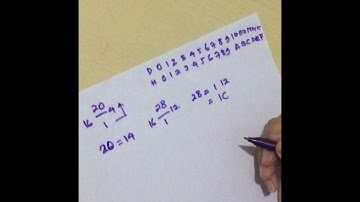 D 0 1 2 3 4 5 6 7 8 9 10 11 12 13 14 15
H 0 1 2 3 4 5 6 7 8 9 A B C D E F
20
16 4
1
20 = 14
28
16 12
1
28 = 1 12
= 1C